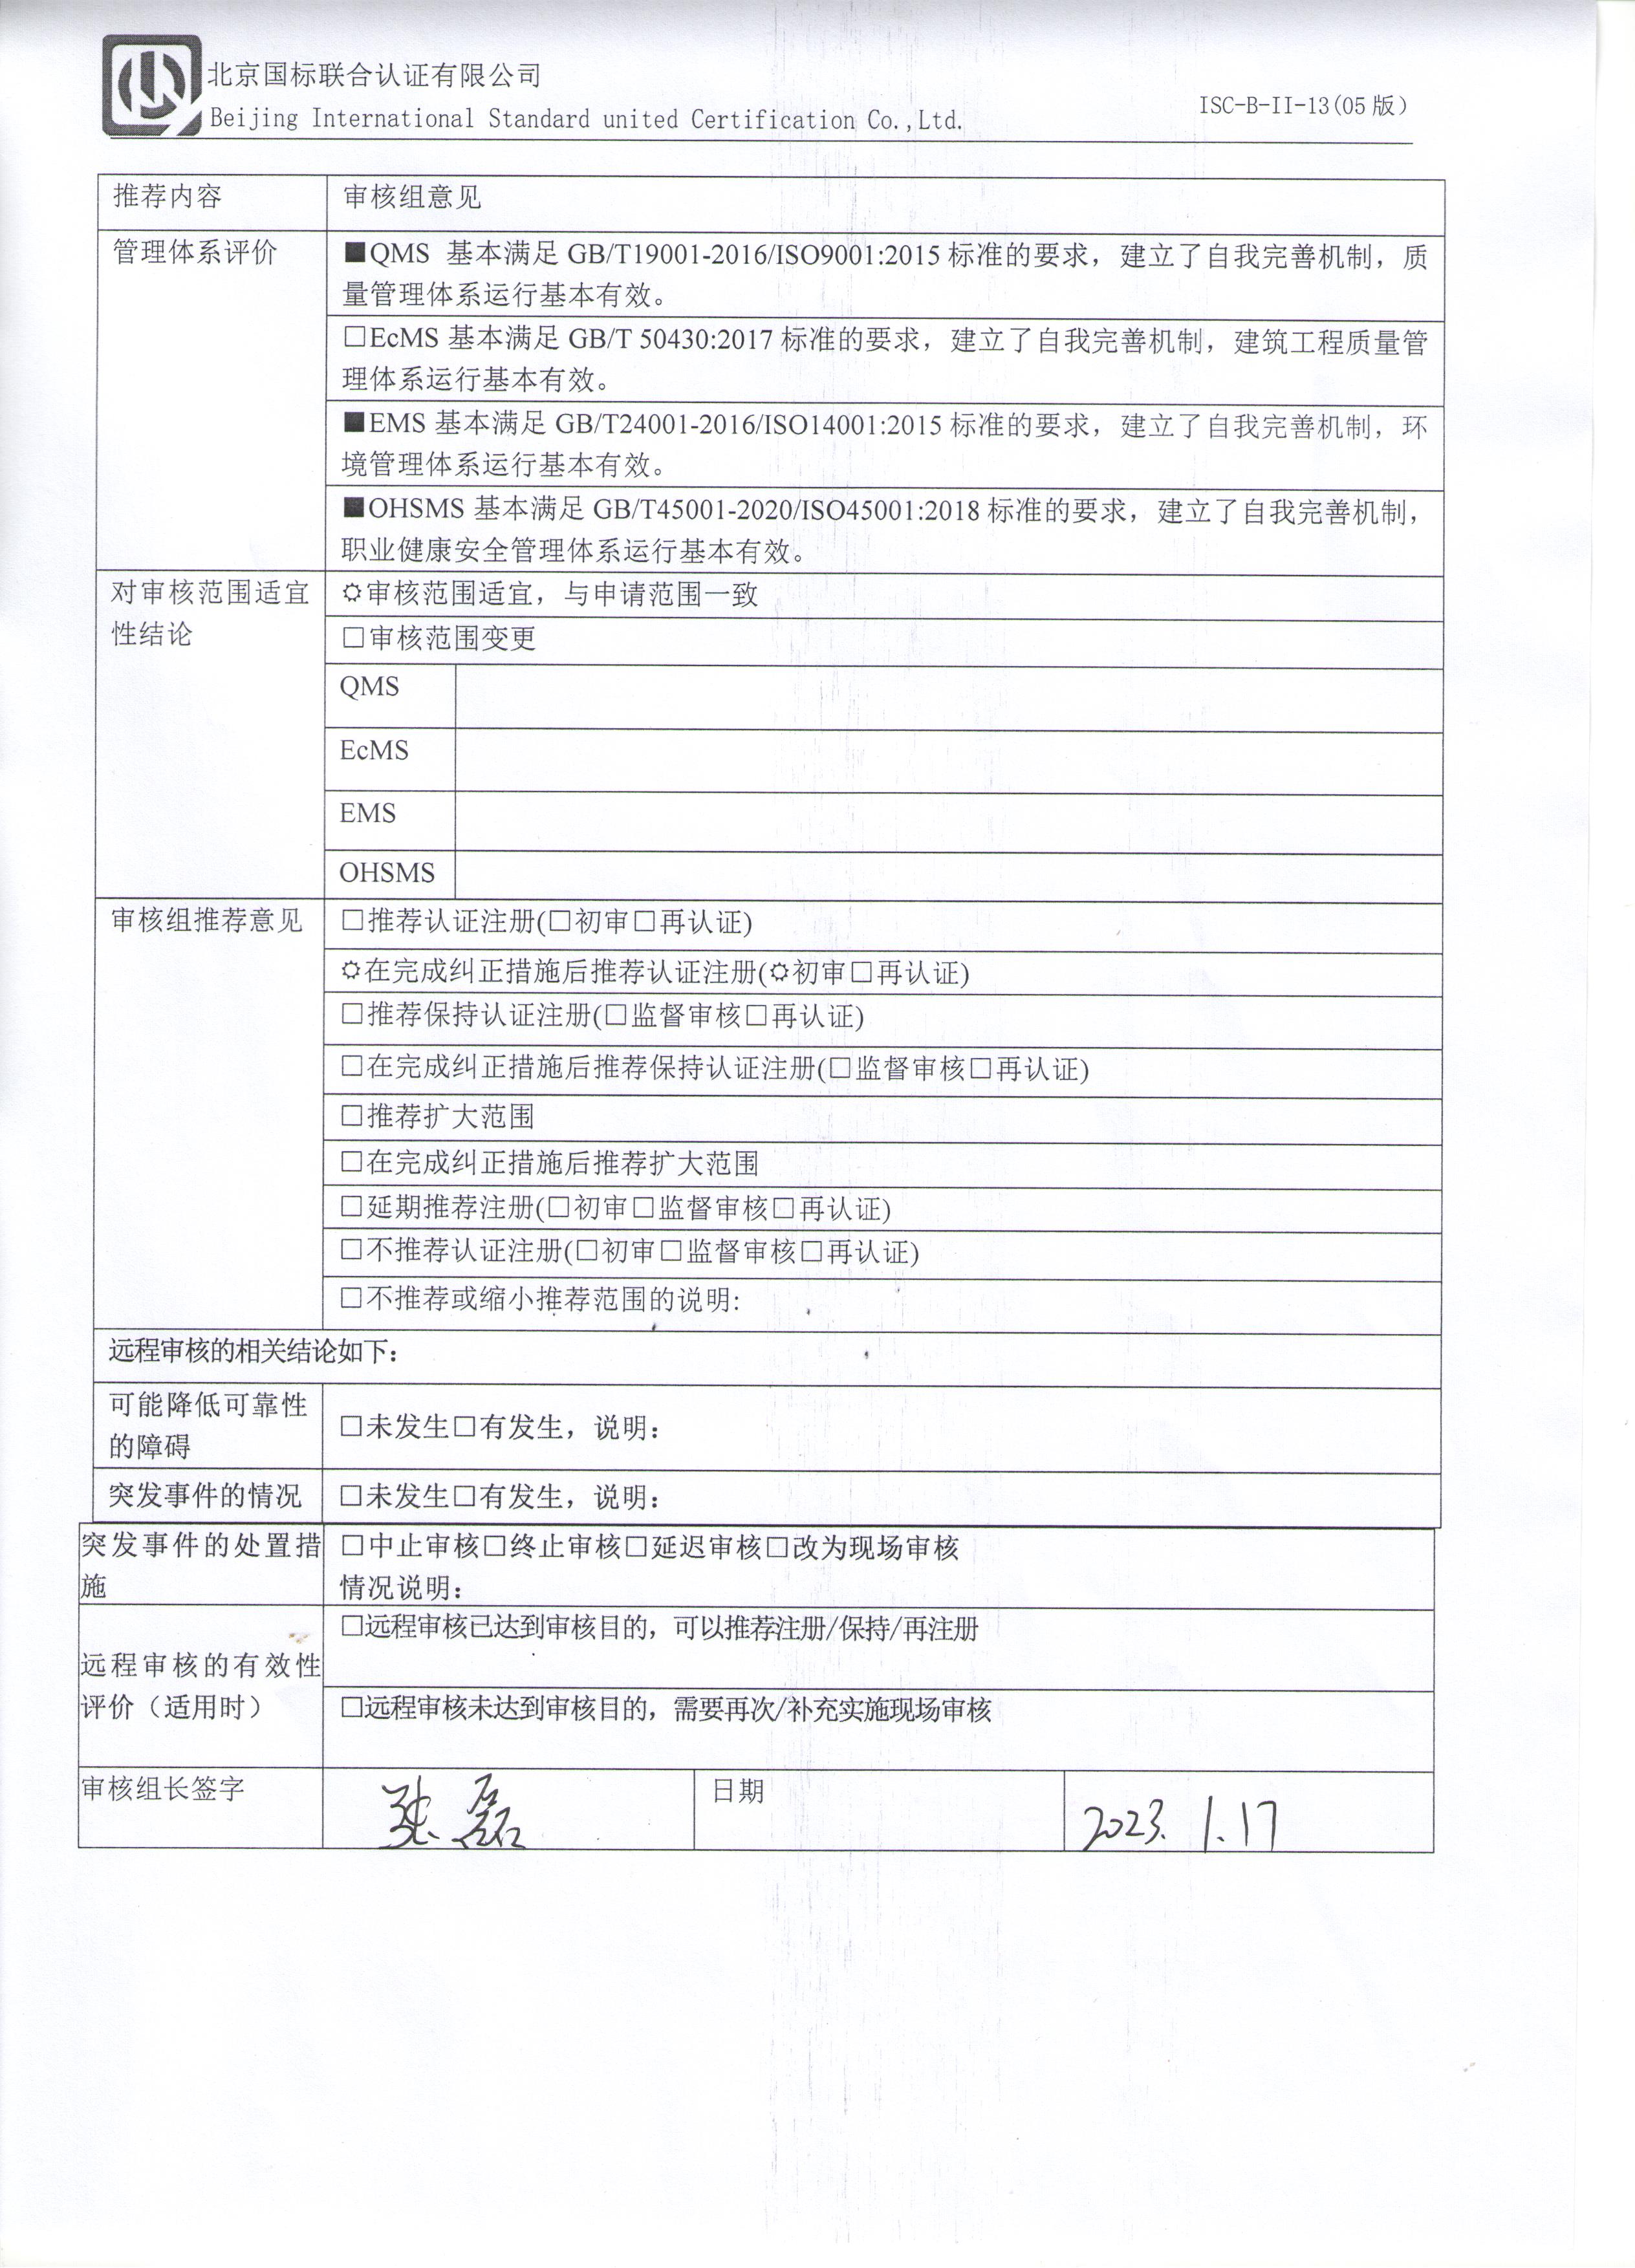 北京国标联合认证有限公司
Beijing International Standard united Certification Co.,Ltd.
ISC-B-II-13(05版)
推荐内容
审核组意见
管理体系评价
■QMS 基本满足 GB/T19001-2016/ISO9001:2015 标准的要求，建立了自我完善机制，质
量管理体系运行基本有效。
□EcMS 基本满足 GB/T 50430:2017 标准的要求，建立了自我完善机制，建筑工程质量管
理体系运行基本有效。
■EMS 基本满足 GB/T24001-2016/ISO14001:2015 标准的要求，建立了自我完善机制，环
境管理体系运行基本有效。
■OHSMS 基本满足 GB/T45001-2020/ISO45001:2018 标准的要求，建立了自我完善机制，
职业健康安全管理体系运行基本有效。
对审核范围适宜
性结论
☼审核范围适宜，与申请范围一致
□审核范围变更
QMS
EcMS
EMS
OHSMS
审核组推荐意见
□推荐认证注册(□初审□再认证)
☼在完成纠正措施后推荐认证注册(☼初审□再认证)
□推荐保持认证注册(□监督审核□再认证)
□在完成纠正措施后推荐保持认证注册(□监督审核□再认证)
□推荐扩大范围
□在完成纠正措施后推荐扩大范围
□延期推荐注册(□初审□监督审核□再认证)
□不推荐认证注册(□初审□监督审核□再认证)
□不推荐或缩小推荐范围的说明:
远程审核的相关结论如下：
可能降低可靠性
的障碍
□未发生□有发生，说明：
突发事件的情况
□未发生□有发生，说明：
突发事件的处置措
施
□中止审核□终止审核□延迟审核□改为现场审核
情况说明：
远程审核的有效性
评价（适用时）
□远程审核已达到审核目的，可以推荐注册/保持/再注册
□远程审核未达到审核目的，需要再次/补充实施现场审核
审核组长签字
张磊
日期
2023.1.17